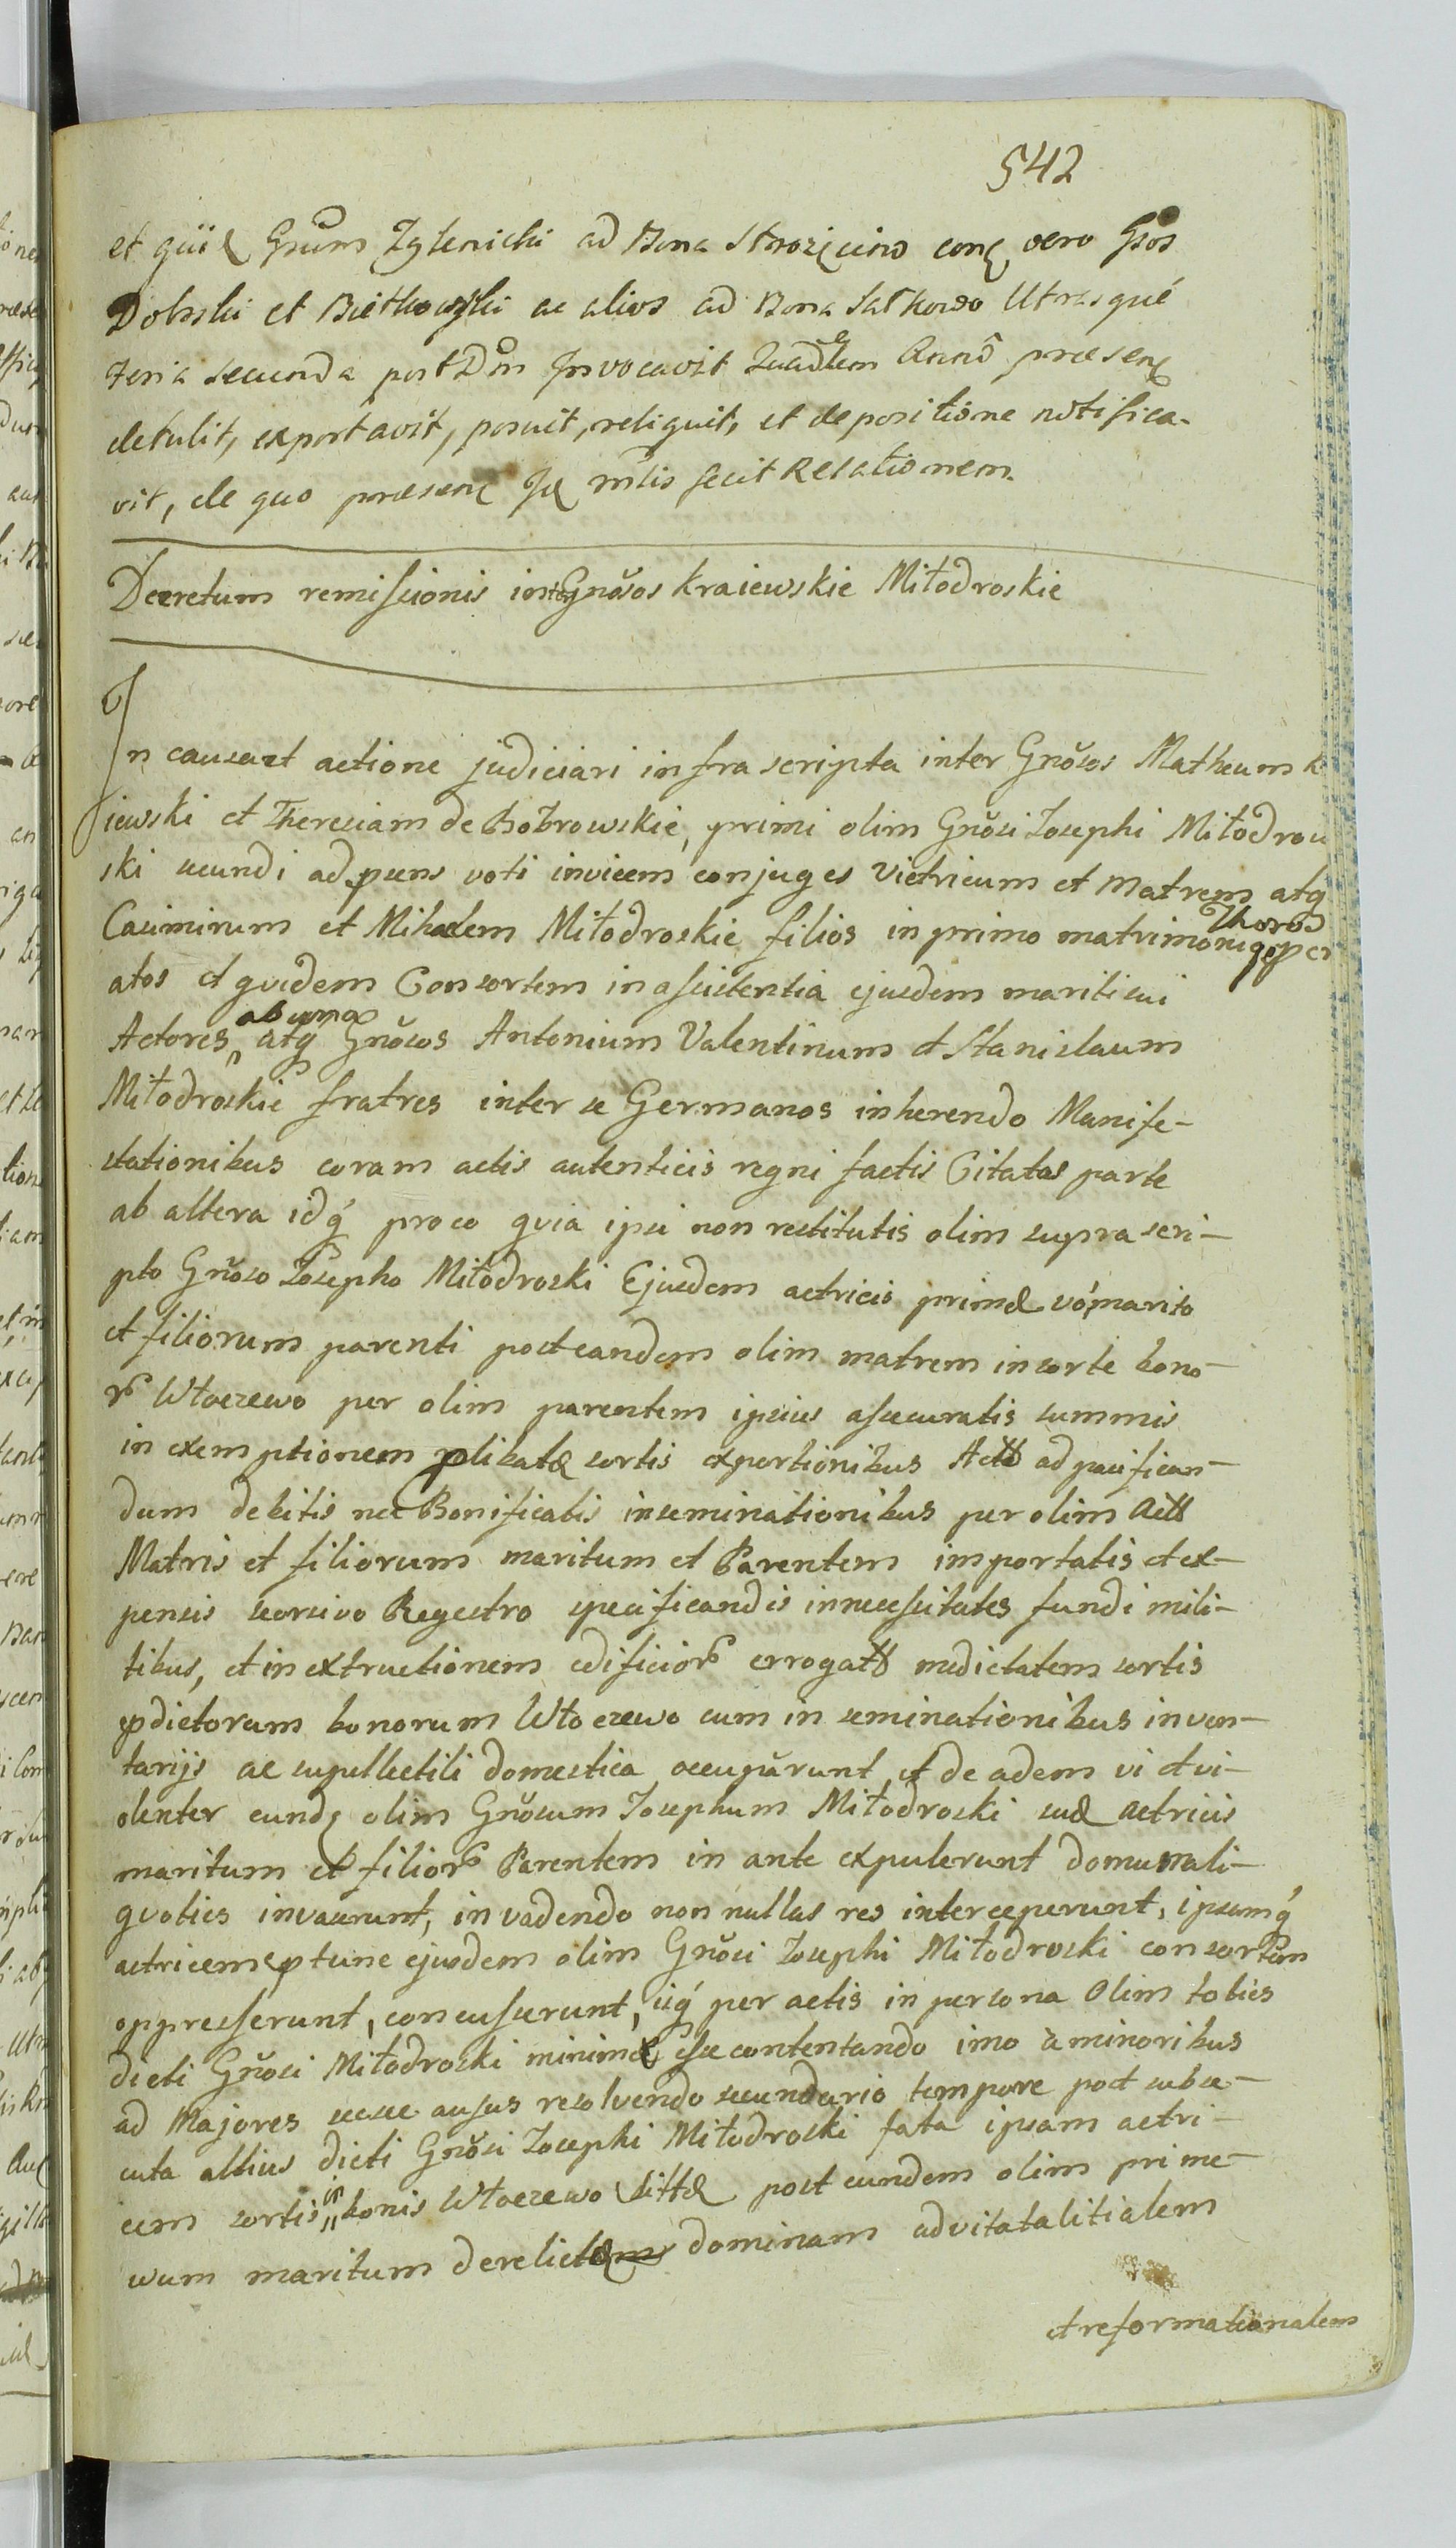 542
et Gsum Zglenicki ad Bona vero Gsos
Dobski et ac alios ad Bona Sarkowo Utrasqué
Feria secunda post Dm Invocavit Anno praesen
detulit, exportavit, posuit, reliquit, et depositione notifica-
vit, de quo praesen mlis fecit Relationem.
Decretum remissionis inter Gnosos Kraiewskie Miłodroskie
In causa et actione judiciari infrascripta inter Gnosos Matheum K
iewski et Theresiam de Bobrowskie, primi olim Gnosi Josephi Miłodrow
ski secundi ad psens voti invicem conjuges Vitricum et Matrem atq
Casimirum et Mihaelem Miłodroskie filios in primo matrimonij Thoro
atos et quidem Consortem in assistentia ejusdem mariti sui
Actores, ab una atq Gnosos Antonium Valentinum et Stanislaum
Miłodroskie fratres inter se Germanos inherendo Manife-
stationibus coram actis autenticis regni factis Citatos parte
ab altera idq́ pro eo quia ipsi non restitutis olim supra scri-
pto Gnoso Josepho Miłodroski Ejusdem actricis primæ vó, marito
et filiorum parenti post eandem olim matrem in sorte bono-
r Włoczewo per olim parentem ipsius assecuratis summis
in exemptionem plibatæ sortis exportionibus Actt ad pacifican-
dum debitis nec Bonificatis inseminationibus per olim Actt
Matris et filiorum maritum et Parentem importatis et ex-
pensis seorsivo Regestro specificandis in necessitates fundi mili-
tibus, et in extructionem edificior errogatt medietatem sortis
pdictorum bonorum Włoczewo cum in seminationibus inven-
tarijs ac supellectili domestica occuparunt et de adem vi et vi-
olenter eund olim Gnosum Josephum Miłodroski suæ actricis
maritum et filior Parentem in ante expulerunt domum ali-
quoties invaserunt, invadendo non nullas res interceperunt, ipsumq́
actricem ptunc ejusdem olim Gnosi Josephi Miłodroski consortem
oppresserunt, concusserunt, iiq́ per actis in persona Olim toties
dicti Gnosi Miłodroski minime esse contentando imo à minoribus
ad Majores sese ausus resolvendo secundario tempore post subse-
cuta altius dicti Gnosi Josephi Miłodroski fata ipsam actri-
cem sortis in bonis Włoczewo sittæ post eundem olim prime-
vum maritum derelictæ dominam advitatalitialem
et reformationalem